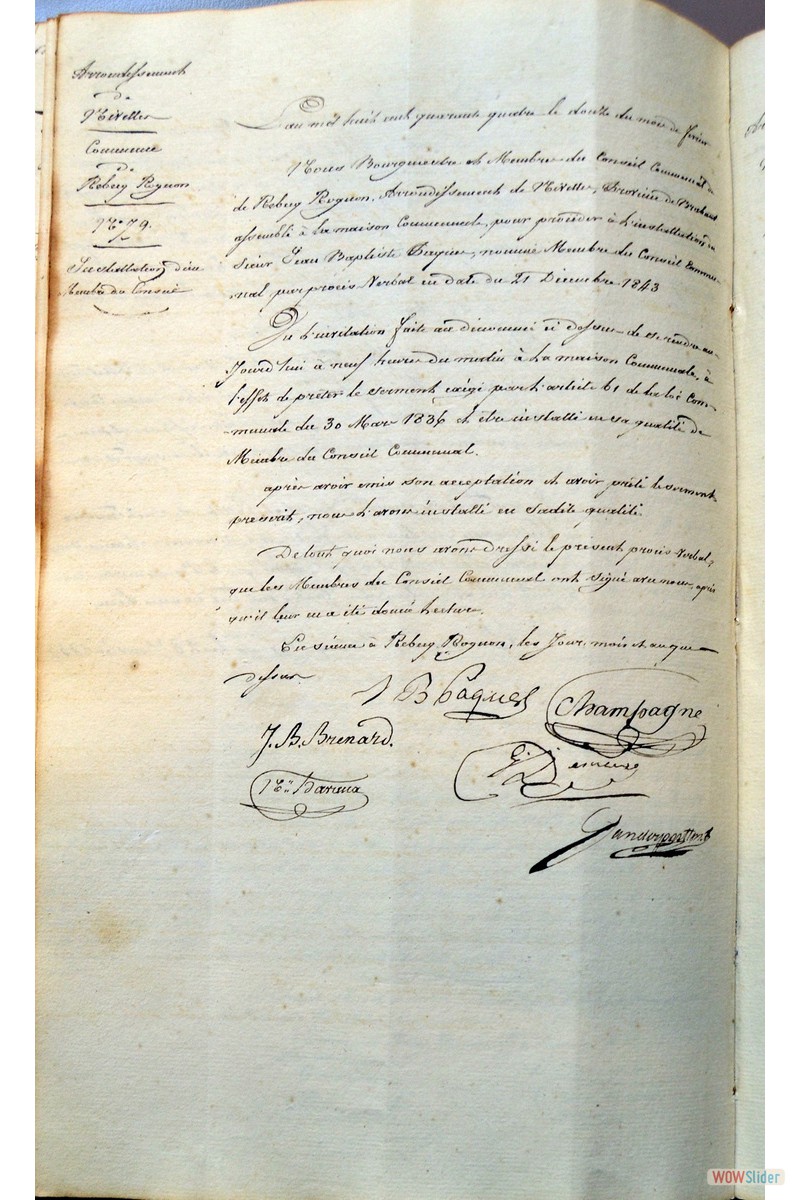 Arrondissement
de
Nivelles
Commune
de
Rebecq Rognon
N° 79.
Installation d'un
Membre du Conseil
L'an mil huit cent quarante quatre le douze du mois de février
Nous Bourgmestre et Membres du Conseil Communal
de Rebecq Rognon, Arrondissement de Nivelles, Province de Brabant
assemblé à la maison Communale, pour procéder à l'installation du
Sieur Jean Baptiste Paquet, nommé Membre du Conseil Commu-
nal par procès Verbal en date du 21 Décembre 1843
Vu l'invitation faite au dénommé ci dessus de se rendre au-
jourd'hui à neuf heures du matin à la maison Communale, à
l'effet de prêter le serment exigé par l'article 61 de la loi Com-
-munale du 30 Mars 1836 et être installé en sa qualité de
Membre du Conseil Communal.
après avoir émis son acceptation et avoir prêté le serment
prescrit, nous l'avons installé en sadite qualité
De tout quoi nous avons dressé le présent procès-verbal,
que les Membres du Conseil Communal ont signé avec nous, après
qu'il leur en a été donné lecture.
En séance à Rebecq Rognon, les Jour, mois et an que
dessus.
J B Paquet
Champagne
J. B. Brenard.
WOWSlider